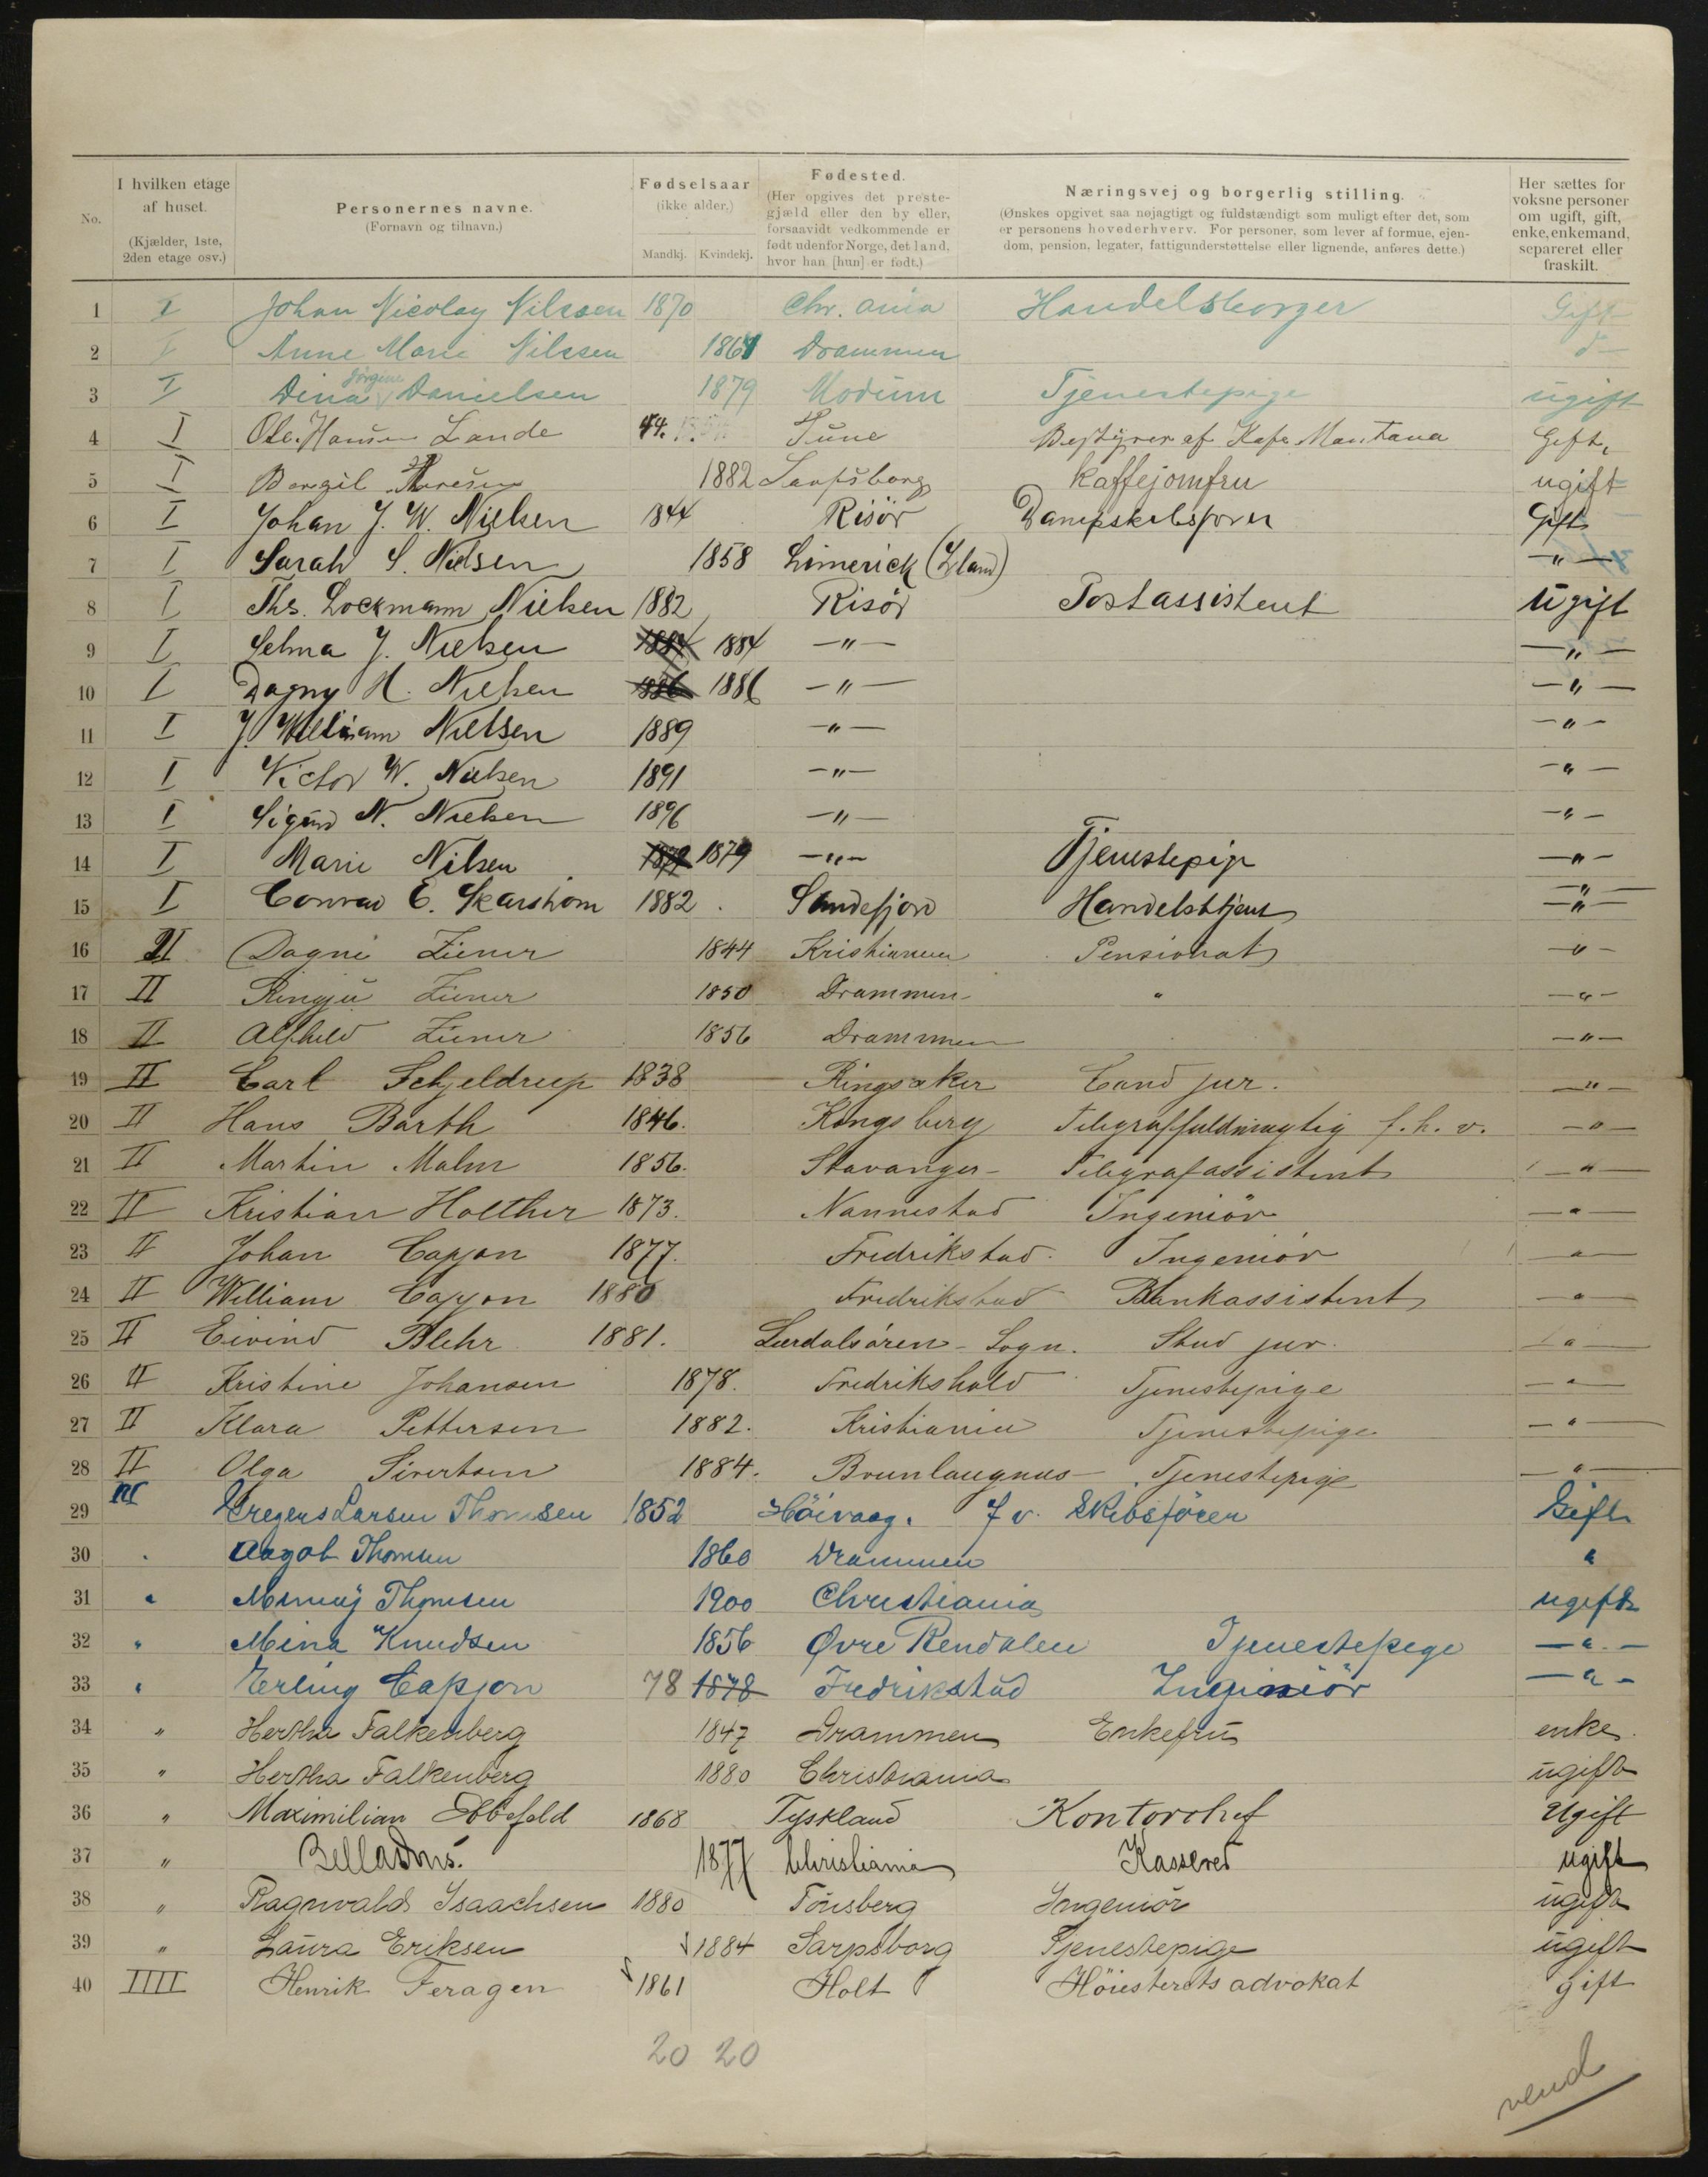 No.
I hvilken etage af huset. (Kjælder, 1ste, 2den etage osv.)
Personernes navne. (Fornavn og tilnavn.)
Fødselsaar (ikke alder.) Mandkj. Kvindekj.
Fødested. (Her opgives det prestegjæld eller den by eller, forsaavidt vedkommende er født udenfor Norge, det land, hvor han [hun] er født.)
Næringsvej og borgerlig stilling. (Ønskes opgivet saa nøjagtigt og fuldstændigt som muligt efter det, som er personens hovederhverv. For personer, som lever af formue, ejendom, pension, legater, fattigunderstøttelse eller lignende, anføres dette.)
Her sættes for voksne personer om ugift, gift, enke, enkemand, separeret eller fraskilt.
1 I Johan Nicolay Nilssen 1870 Chr.ania Handelsborger Gift
2 I Anne Marie Nilssen 1861 Drammen d—
3 I Dina Jörgine Danielsen 1879 Modum Tjenestepige ugift
4 I Ole Hansen Lande 44. Tune Bestyrer af Kafe Mantana Gift,
5 I Borgil 1882 Sarpsborg Kaffejomfru ugift
6 I Johan J. W. Nielsen 1844 Risör Dampskibsförer Gift
7 I Sarah S. Nielsen 1858 Limerick (Irland) —"—
8 I Ths. Lockmann Nielsen 1882 Risör Postassistent Ugift
9 I Selma J. Nielsen 1884 1884 —"— —"—
10 I Dagny H. Nielsen 1886 1886 —"— —"—
11 I J. William Nielsen 1889 —"— —"—
12 I Victor W. Nielsen 1891 —"— —"—
13 I Sigurd N. Nielsen 1896 —"— —"—
14 I Marie Nilsen 1879 1879 —"— Tjenestepige —"—
15 I Conrad E. Skarshom 1882 Sandefjord Handelsbetjent —"—
16 II Dagni Ziener 1844 Kristiania Pensionat —"—
17 II Ziener 1850 Drammen " —"—
18 II Alfhild Ziener 1856 Drammen —"—
19 II Carl Schjeldrup 1838 Ringsaker Cand jur. —"—
20 II Hans Barth 1846. Kongsberg Telegraffuldmægtig f. h. v. —"—
21 II Martin Malm 1856. Stavanger Telegrafassistent —"—
22 II Kristian Holther 1873. Nannestad Ingeniör —"—
23 II Johan Capjon 1877. Fredrikstad. Ingeniör —"—
24 II William Capjon 1880 Fredrikstad Bankassistent —"—
25 II Eivind Blehr 1881. Lærdalsören - Sogn. Stud jur. —"—
26 II Kristine Johansen 1878. Fredrikshald Tjenestepige —"—
27 II Klara Pettersen 1882. Kristiania Tjenestepige —"—
28 II Olga Sivertsen 1884. Brunlaugnæs Tjenestepige —"—
29 III Gregers Larsen Thomsen 1852 Höivaag. f v. Skibsförer Gift
30 " Aagot Thomsen 1860 Drammen "
31 " Thomsen 1900 Christiania ugift
32 " Mina Knudsen 1856 Øvre Rendalen Tjenestepige —"—
33 " Erling Capjon 78 1878 Fredrikstad Ingeniör —"—
34 " Hertha Falkenberg 1847 Drammen Enkefru enke.
35 " Hertha Falkenberg 1880 Christiania ugift
36 " Maximilian Ebbefeld 1868 Tyskland Kontorchef Ugift
37 " 1877 Christiania Kassered ugift
38 " Ragnvald Isaachsen 1880 Tönsberg Ingeniör ugift
39 " Laura Eriksen 1884 Sarpsborg Tjenestepige ugift
40 IIII Henrik Feragen 1861 Holt Höiesteretsadvokat gift
20 20
vend